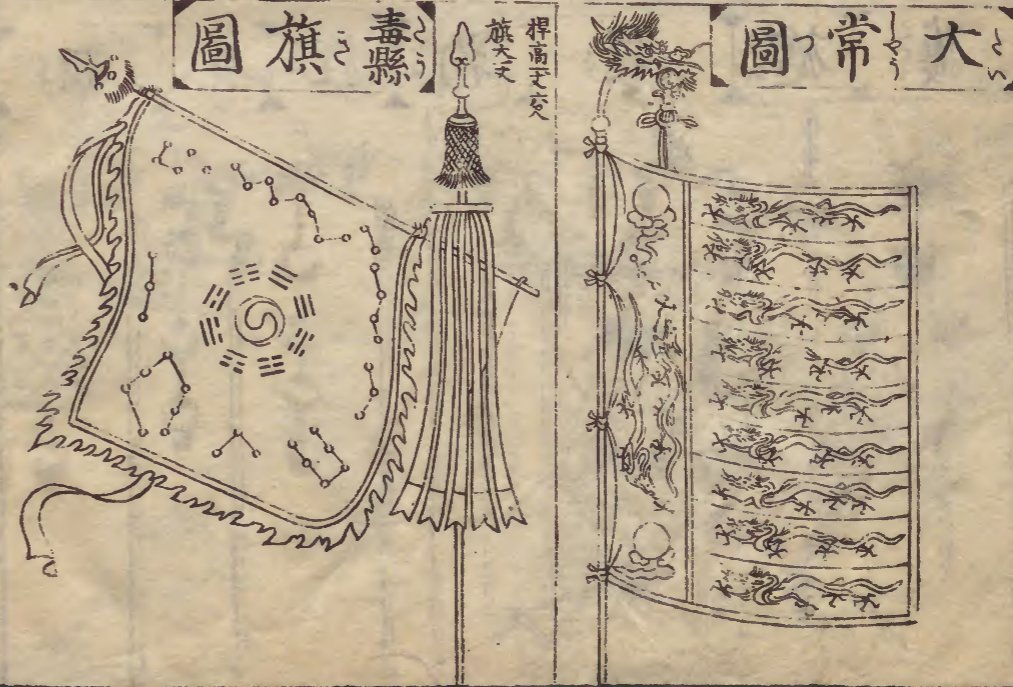 大常圖
たい しやう つ
桿高一丈六尺
旗大一丈
纛旗圖
たう き